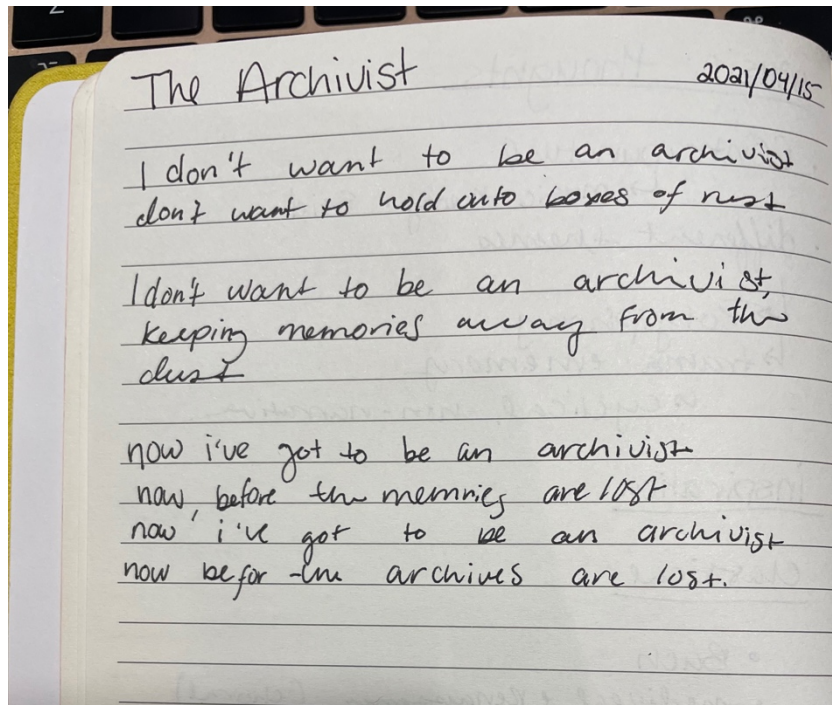 The Archivist 2021/04/15
I don't want to be an archivist
don't want to hold onto boxes of rust
I don't want to be an archivist,
keeping memories away from the
dust
now i've got to be an archivist
now, before the memries are lost
now i've got to be an archivist
now befor the archives are lost.